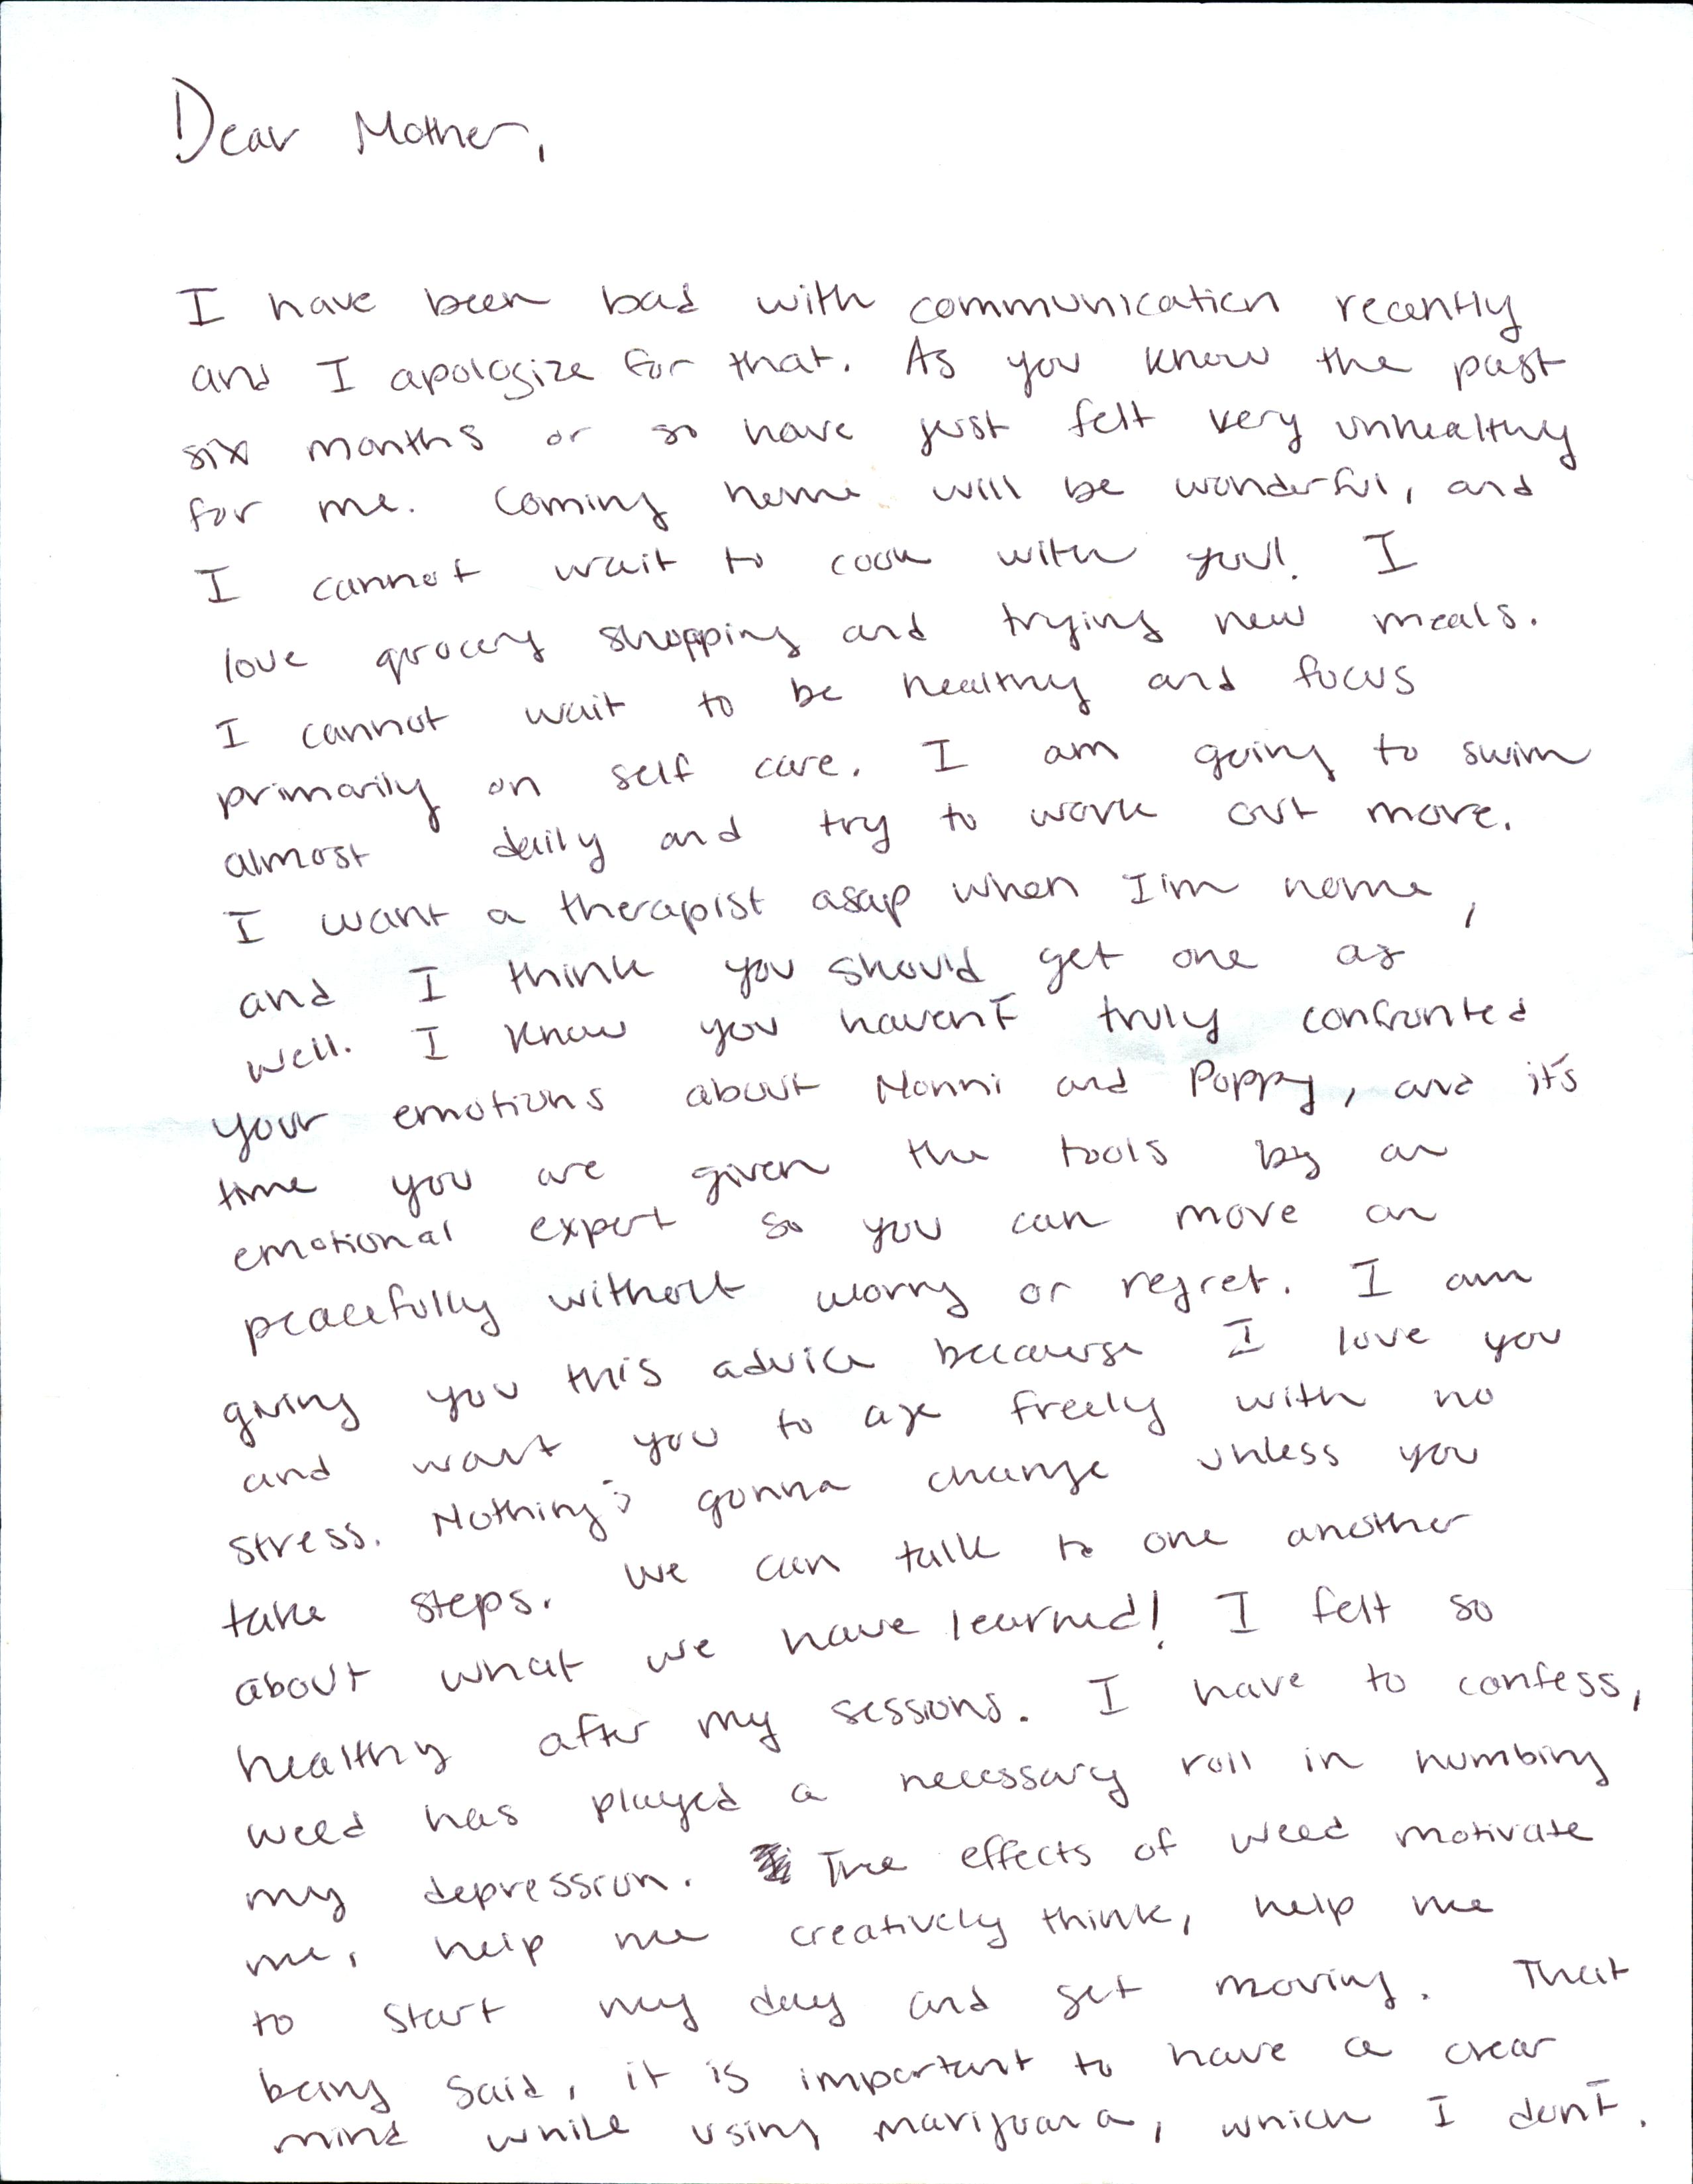 Dear Mother,
I have been bad with communication recently
and I apologize for that. As you know the past
six months or so have just felt very unhealthy
for me. Coming home will be wonderful, and
I cannot wait to cook with you! I
love grocery shopping and trying new meals.
I cannot wait to be healthy and focus
primarily on self care. I am going to swim
almost daily and try to work out more.
I want a therapist asap when I'm home,
and I think you should get one as
well. I know you haven't truly confronted
your emotions about Nonni and Poppy, and it's
time you are given the tools by an
emotional expert so you can move on
peacefully without worry or regret. I am
giving you this advice because I love you
and want you to age freely with no
stress. Nothing's gonna change unless you
take steps. We can talk to one another
about what we have learned! I felt so
healthy after my sessions. I have to confess,
weed has played a necessary roll in numbing
my depression. The effects of weed motivate
me, help me creatively think, help me
to start my day and get moving. That
being said, it is important to have a clear
mind while using marijuana, which I don't.